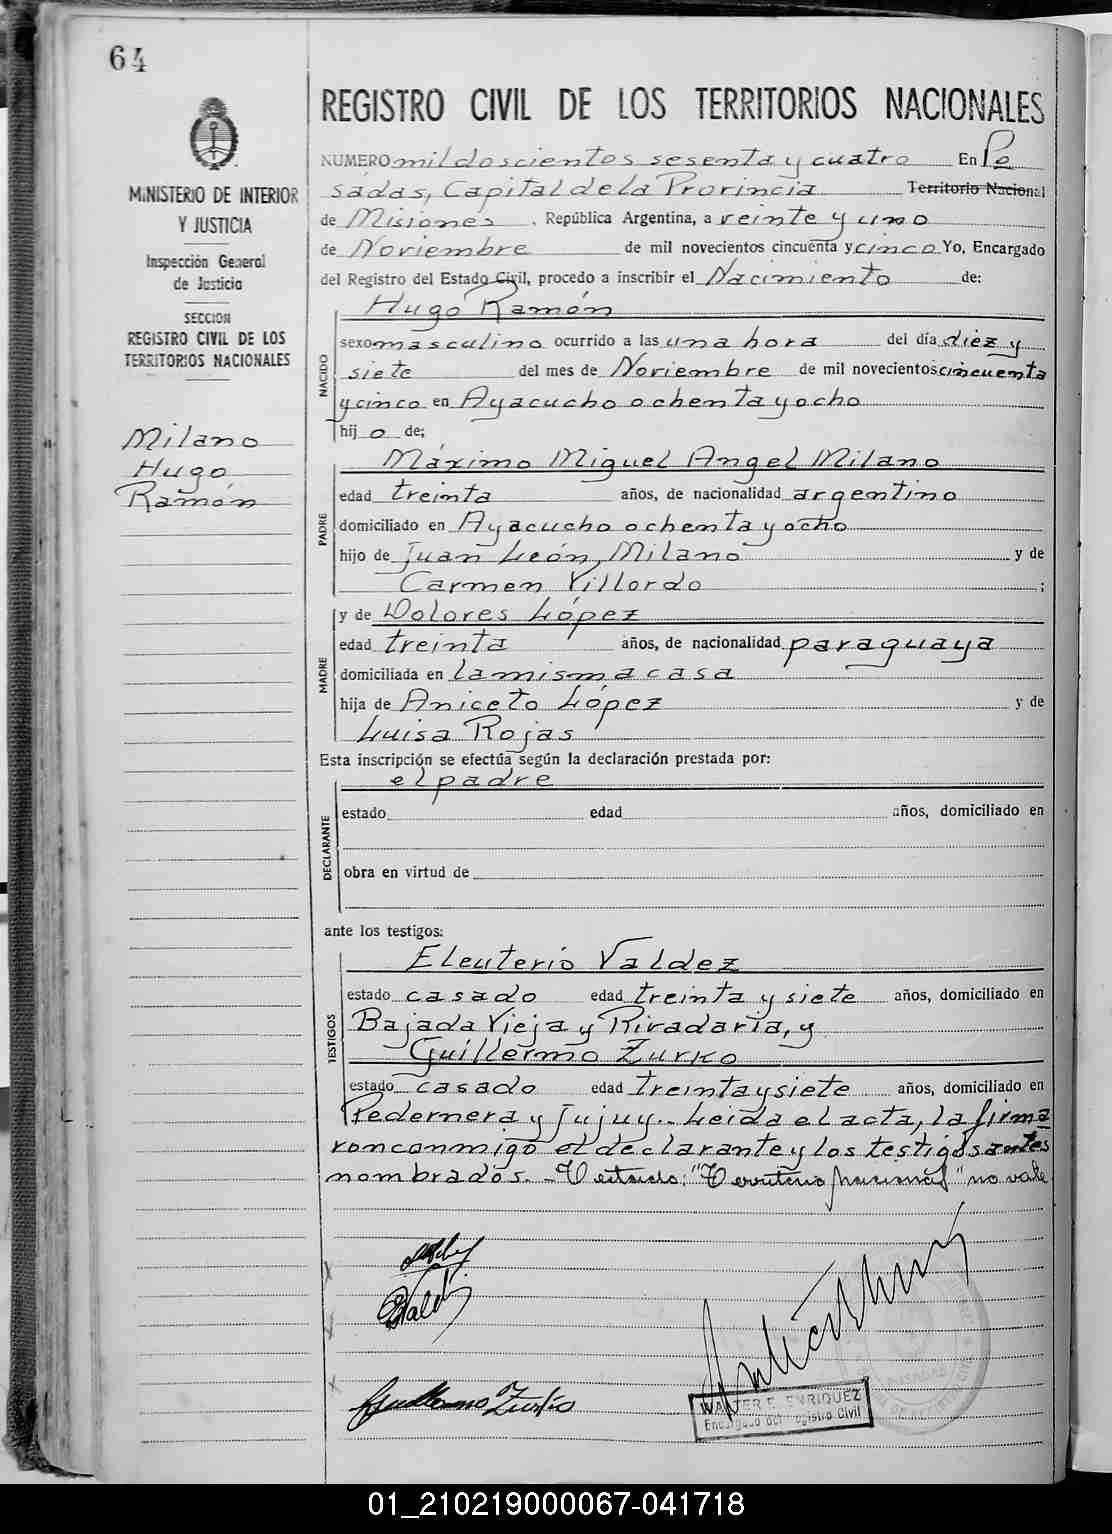 64
MINISTERIO DE INTERIOR
Y JUSTICIA
Inspección General
de Justicia
SECCION
REGISTRO CIVIL DE LOS
TERRITORIOS NACIONALES
Milano
Hugo
Ramón
REGISTRO CIVIL DE LOS TERRITORIOS NACIONALES
NUMERO mil doscientos sesenta y cuatro En Po
sadas, Capital de la Provincia Territorio Nacional
de Misiones, República Argentina, a veinte y uno
de Noviembre de mil novecientos cincuenta y cinco Yo, Encargado
del Registro del Estado Civil, procedo a inscribir el Nacimiento de:
Hugo Ramón
NACIDO
sexo masculino ocurrido a las una hora del día diez y
siete del mes de Noviembre de mil novecientos cincuenta
y cinco en Ayacucho ochenta y ocho
hijo de;
Máximo Miguel Angel Milano
PADRE
edad treinta años, de nacionalidad argentino
domiciliado en Ayacucho ochenta y ocho
hijo de Juan León Milano y de
Carmen Villordo ;
y de Dolores López
MADRE
edad treinta años, de nacionalidad paraguaya
domiciliada en la misma casa
hija de Aniceto López y de
Luisa Rojas
Esta inscripción se efectúa según la declaración prestada por:
el padre
DECLARANTE
estado edad años, domiciliado en
obra en virtud de
ante los testigos:
Eleuterio Valdez
TESTIGOS
estado casado edad treinta y siete años, domiciliado en
Bajada Vieja y Rivadavia, y
Guillermo Zurko
estado casado edad treinta y siete años, domiciliado en
Pedernera y Jujuy.. Leida el acta, la firma
ron conmigo el declarante y los testigos antes
nombrados. - Testado: "Territorio Nacional" no vale
EValdez
Guillermo Zurko
WALTER F. ENRIQUEZ
Encargado del Registro Civil
POSADAS
01_210219000067-041718